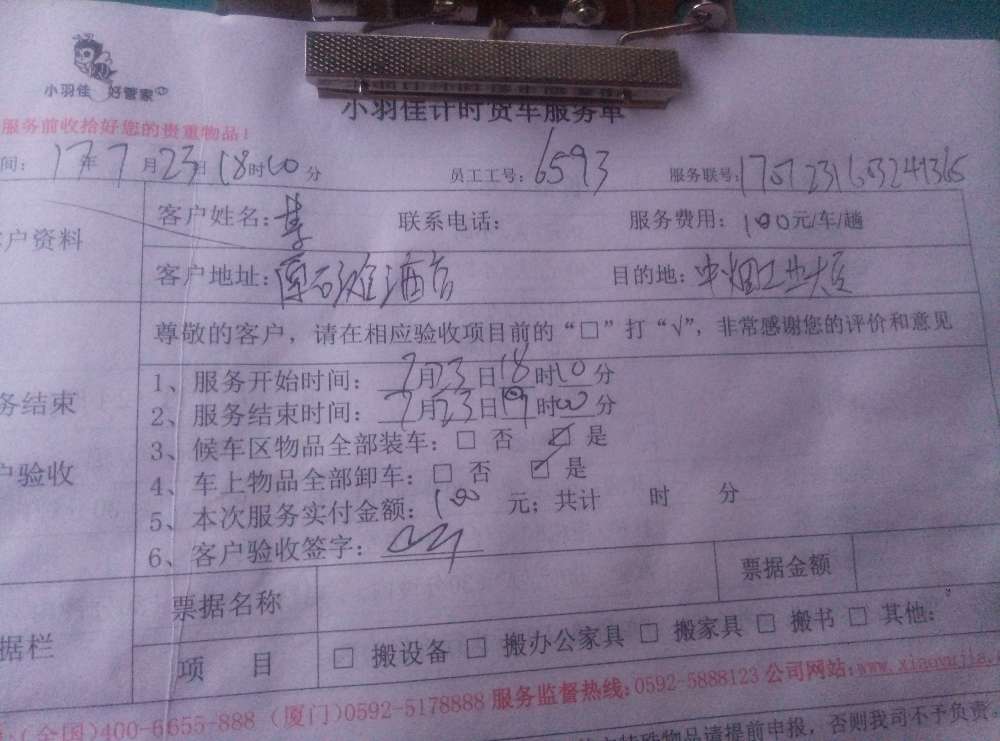 小羽佳 好管家
小羽佳计时货车服务单
服务前收拾好您的贵重物品！
间：17年7月23日18时00分 员工工号：6593 服务联号：
客户姓名：李 联系电话： 服务费用：100元/车/趟
户资料
客户地址： 目的地：
尊敬的客户，请在相应验收项目前的“□”打“√”，非常感谢您的评价和意见
1、服务开始时间：7月23日18时00分
2、服务结束时间：7月23日19时00分
务结束
3、候车区物品全部装车：□ 否 ☑ 是
4、车上物品全部卸车：□ 否 ☑ 是
户验收
5、本次服务实付金额：100 元；共计 时 分
6、客户验收签字：
票据名称 票据金额
据栏
项 目 □ 搬设备 □ 搬办公家具 □ 搬家具 □ 搬书 □ 其他：
（全国）400-6655-888（厦门）0592-5178888 服务监督热线：0592-5888123 公司网站：www.xiaoyujia.
特殊物品请提前申报，否则我司不予负责。